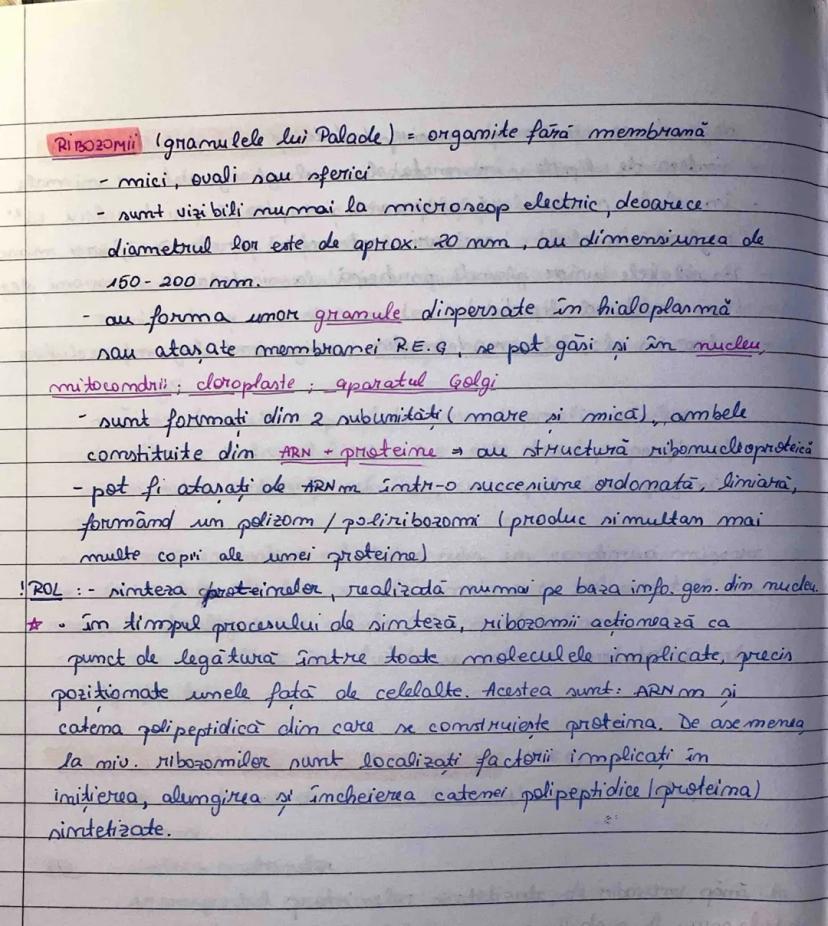 RIBOZOMII (granulele lui Palade) = organite fără membrană
- mici, ovali sau sferici
- sunt vizibili numai la microscop electric, deoarece
diametrul lor este de aprox. 20 nm, au dimensiunea de
150-200 nm.
- au forma unor granule dispersate în hialoplasmă
sau atașate membranei R.E.G, se pot găsi și în nucleu,
mitocondrii; cloroplaste; aparatul Golgi
- sunt formați din 2 subunități (mare și mică), ambele
constituite din ARN + proteine ⇒ au structură ribonucleoproteică
- pot fi atașați de ARNm într-o succesiune ordonată, liniară,
formând un polizom / poliribozomi (produc simultan mai
multe copii ale unei proteine)
! ROL :- sinteza proteinelor, realizată numai pe baza info. gen. din nucleu.
☆ • în timpul procesului de sinteză, ribozomii acționează ca
punct de legătură între toate moleculele implicate, precis
poziționate unele față de celelalte. Acestea sunt: ARNm și
catena polipeptidică din care se construiește proteina. De asemenea
la niv. ribozomilor sunt localizați factorii implicați în
inițierea, alungirea și încheierea catenei polipeptidice (proteina)
sintetizate.